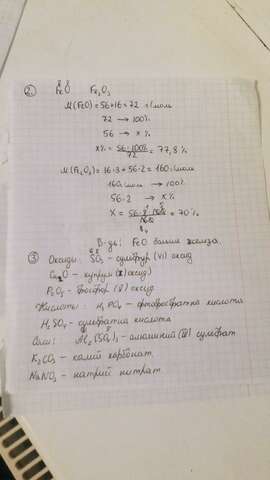 ② FeO Fe₂O₃
M(FeO)=56+16=72 г/моль
72 → 100%
56 → x %
x%= 56·100% / 72 = 77,8%
M(Fe₂O₃)= 16·3+56·2=160 г/моль
160 г/моль → 100%
56·2 → x %
X = = 70%
В-дь: FeO больше железа.
③ Оксиды: SO₃ - сульфур (VI) оксид
O - купрум оксид
P₂O₅ - фосфор (V) оксид
Кислоты: H₃PO₄ - кислота
H₂SO₄ - сульфатна кислота
Соли: Al₂(SO₄)₃ - алюминий (III) сульфат
K₂CO₃ - калий карбонат
NaNO₃ - натрий нитрат